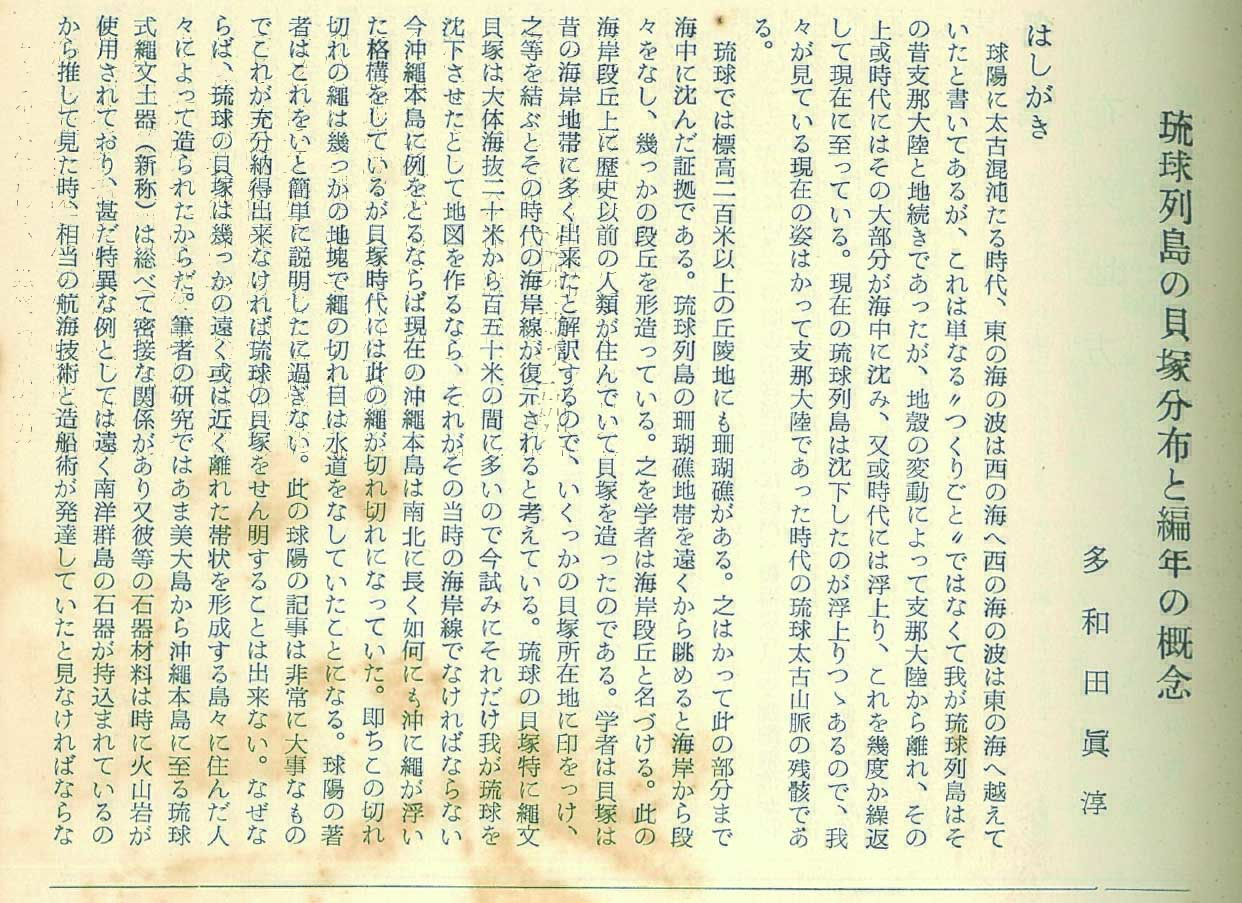 琉球列島の貝塚分布と編年の概念
多和田眞淳
はしがき
球陽に太古混沌たる時代、東の海の波は西の海へ西の海の波は東の海へ越えて
いたと書いてあるが、これは単なる〃つくりごと〃ではなくて我が琉球列島はそ
の昔支那大陸と地続きであったが、地殻の変動によって支那大陸から離れ、その
上或時代にはその大部分が海中に沈み、又或時代には浮上り、これを幾度か繰返
して現在に至っている。現在の琉球列島は沈下したのが浮上りつゝあるので、我
々が見ている現在の姿はかって支那大陸であった時代の琉球太古山脈の残骸であ
る。
琉球では標高二百米以上の丘陵地にも珊瑚礁がある。之はかって此の部分まで
海中に沈んだ証拠である。琉球列島の珊瑚礁地帯を遠くから眺めると海岸から段
々をなし、幾っかの段丘を形造っている。之を学者は海岸段丘と名づける。此の
海岸段丘上に歴史以前の人類が住んでいて貝塚を造ったのである。学者は貝塚は
昔の海岸地帯に多く出来たと解訳するので、いくっかの貝塚所在地に印をっけ、
之等を結ぶとその時代の海岸線が復元されると考えている。琉球の貝塚特に縄文
貝塚は大体海抜二十米から百五十米の間に多いので今試みにそれだけ我が琉球を
沈下させたとして地図を作るなら、それがその当時の海岸線でなければならない
今沖縄本島に例をとるならば現在の沖縄本島は南北に長く如何にも沖に縄が浮い
た格構をしているが貝塚時代には此の縄が切れ切れになっていた。即ちこの切れ
切れの縄は幾っかの地塊で縄の切れ目は水道をなしていたことになる。球陽の著
者はこれをいと簡単に説明したに過ぎない。此の球陽の記事は非常に大事なもの
でこれが充分納得出来なければ琉球の貝塚をせん明することは出来ない。なぜな
らば、琉球の貝塚は幾っかの遠く或は近く離れた帯状を形成する島々に住んだ人
々によって造られたからだ。筆者の研究ではあま美大島から沖縄本島に至る琉球
式縄文土器（新称）は総べて密接な関係があり又彼等の石器材料は時に火山岩が
使用されており、甚だ特異な例としては遠く南洋群島の石器が持込まれているの
から推して見た時、相当の航海技術と造船術が発達していたと見なければならな